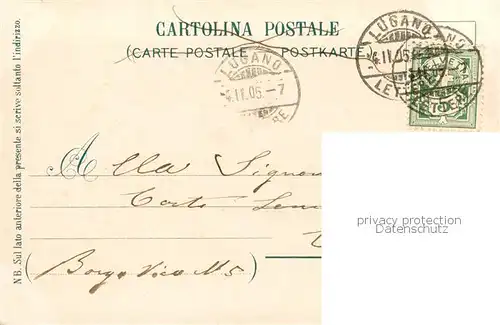 CARTOLINA POSTALE
(CARTE POSTALE POSTKARTE
LUGANO
4.II.05.-7
LETTERE
LUGANO
4.II.05
LETTERE
NB. Sul lato anteriore della presente si scrive soltanto l'indirizzo.
Alla Signora
privacy protection
Datenschutz
(Borgo Vico N 5)